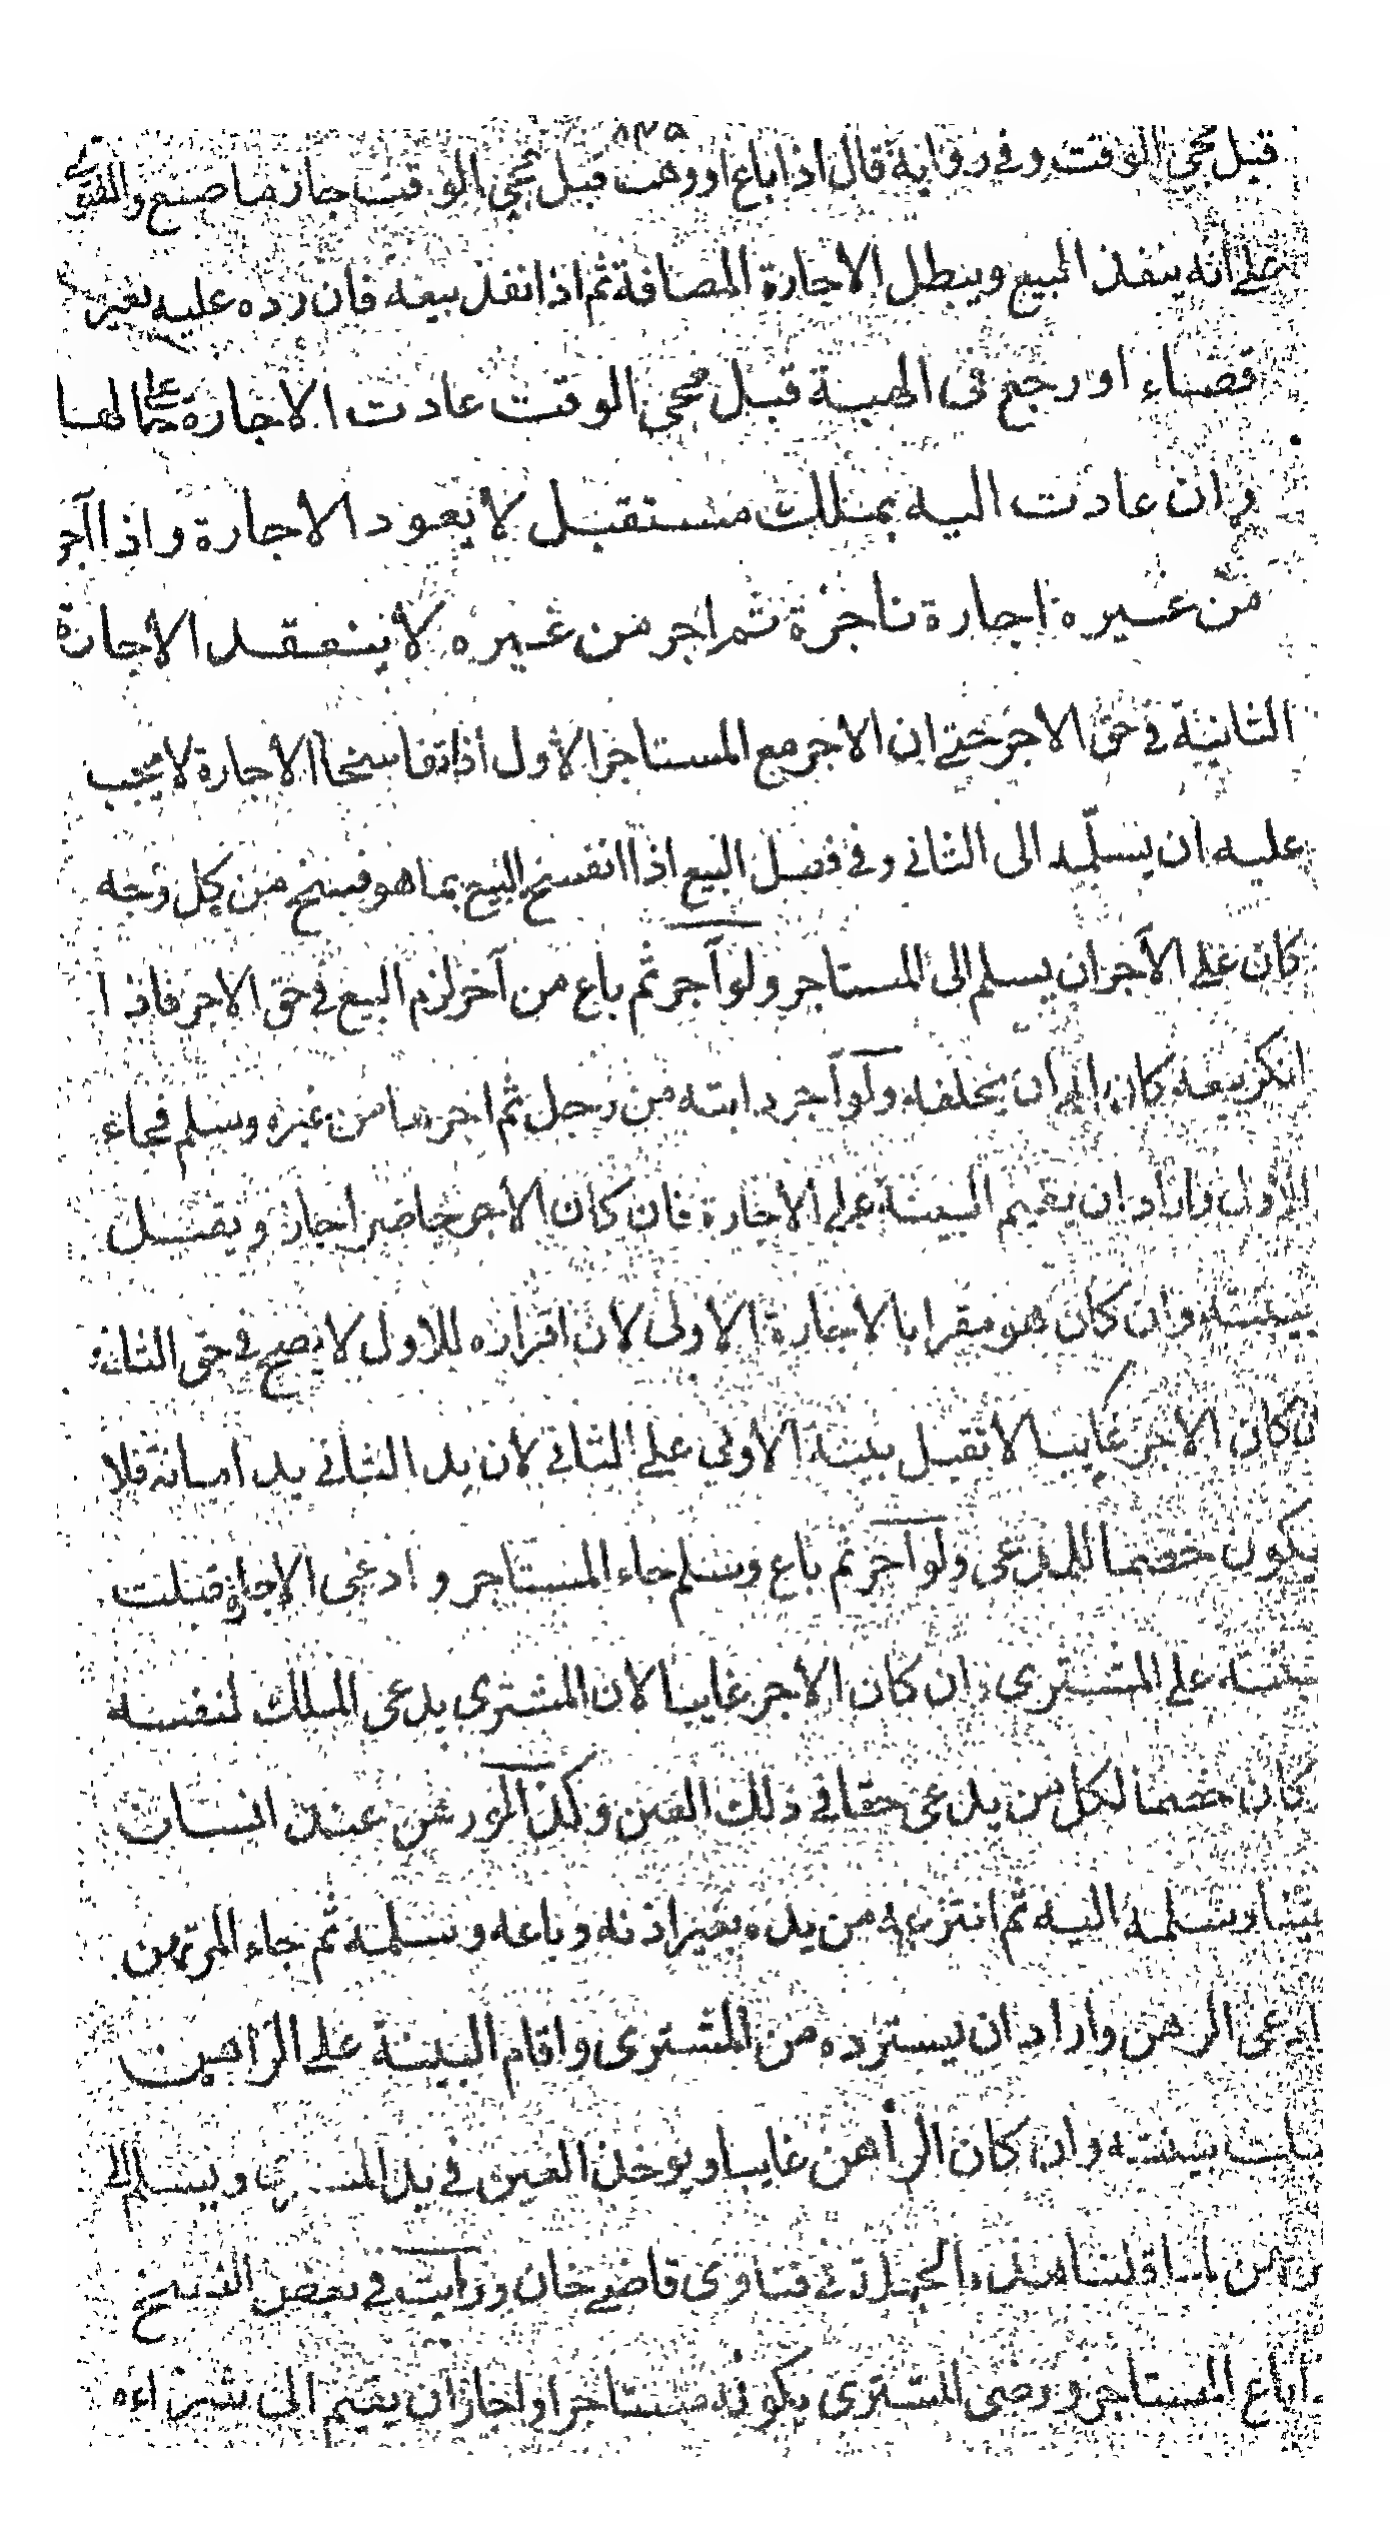 قبل مجى الوقت وفي رواية قال اذا باع او وهب قبل مجى الوقت جاز ما صنع والفتوى
على انه ينفذ البيع ويبطل الاجارة المضافة ثم اذا نفذ بيعه فان رده عليه بغير
قضاء او رجع في الهبة قبل مجى الوقت عادت الاجارة على حالها
وان عادت اليه بملك مستقبل لا يعود الاجارة واذا آجر
من غيره اجارة ناجزة ثم اجر من غيره لا ينعقد الاجارة
الثانية في حق الاجر حتى ان الاجر مع المستاجر الاول اذا تفاسخا الاجارة لا يجب
عليه ان يسلمه الى الثاني وفي فصل البيع اذا انفسخ البيع بما هو فسخ من كل وجه
كان على الآجر ان يسلم الى المستاجر ولو آجر ثم باع من آخر لزم البيع في حق الاجر فاذا
انكر بيعه كان له ان يحلفه ولو آجر دابته من رجل ثم اجرها من غيره وسلم فجاء
الاول واراد ان يقيم البينة على الاجارة فان كان الآجر حاضرا جاز ويقبل
بينته وان كان هو مقرا بالاجارة الاولى لان اقراره للاول لا يصح في حق الثاني و
ان كان الاجر غايبا لا تقبل بينة الاولي على الثاني لان يد الثاني يد امانة فلا
يكون خصما للمدعى ولو آجر ثم باع وسلم جاء المستاجر و ادعى الاجارة قبلت
بينته على المشترى وان كان الاجر غايبا لان المشترى يدعى الملك لنفسه
كان خصما لكل من يدعى حقا في ذلك العين وكذا لو رهن عند انسان
شيا وسلمه اليه ثم انتزعه من يده بغير اذنه وباعه وسلمه ثم جاء المرتهن
ادعى الرهن واراد ان يسترده من المشترى واقام البينة على الراهن
قبلت بينته وان كان الراهن غايبا ويوخذ العين في يد المشترى ويسلم الى
المرتهن لما قلنا هذه الجملة في فتاوى قاضي خان ورايت في بعض النسخ
اذا باع المستاجر ورضى المشترى يكونه مستاجرا واجاز ان يقيم الى شراءه